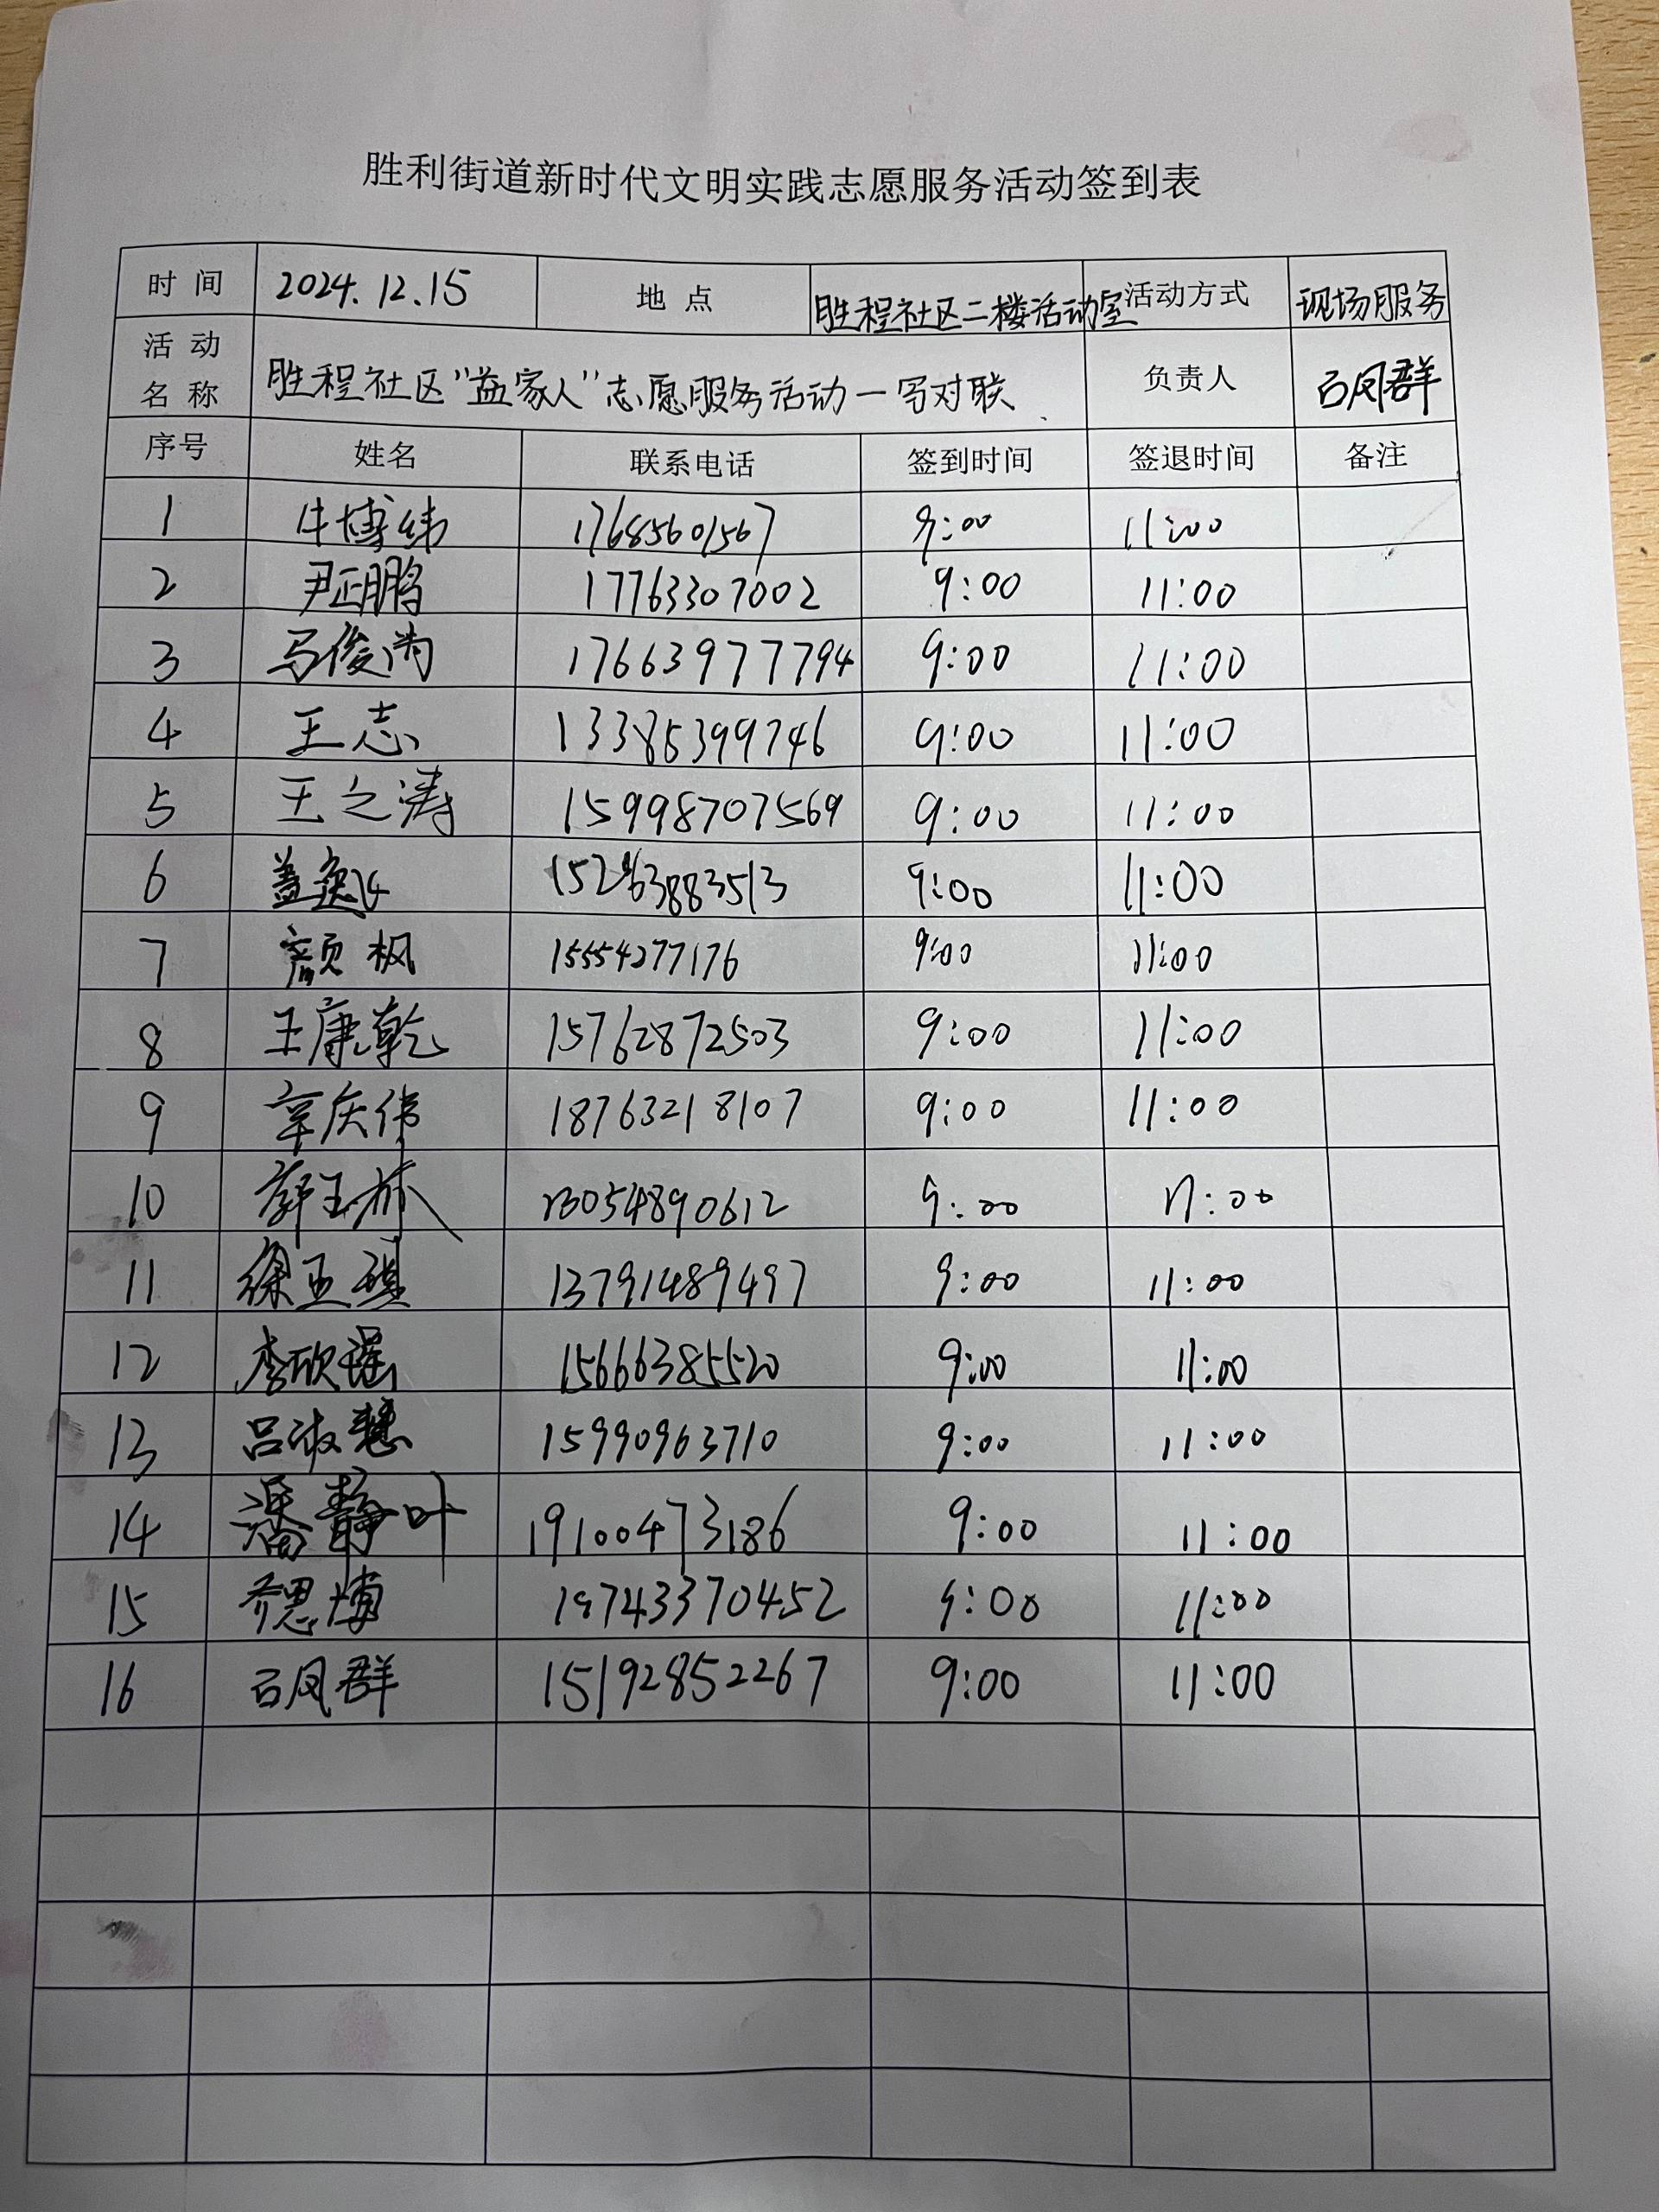 胜利街道新时代文明实践志愿服务活动签到表
时间 2024.12.15 地点 胜程社区二楼活动室 活动方式 现场服务
活动名称 胜程社区“益家人”志愿服务活动一写对联 负责人 石凤群
序号 姓名 联系电话 签到时间 签退时间 备注
1 牛博纬 17685601567 9:00 11:00
2 尹正鹏 17763307002 9:00 11:00
3 马俊 17663977794 9:00 11:00
4 王志 13385399746 9:00 11:00
5 王之涛 15998707569 9:00 11:00
6 盖 9:00 11:00
7 颜枫 15554277176 9:00 11:00
8 王康乾 15762872503 9:00 11:00
9 辛庆伟 18763218107 9:00 11:00
10 13054890612 9:00 11:00
11 徐玉琪 13791489497 9:00 11:00
12 李欣瑶 15666385520 9:00 11:00
13 吕淑慧 15990963710 9:00 11:00
14 潘静叶 19100473186 9:00 11:00
15 乔思博 19743370452 9:00 11:00
16 石凤群 15192852267 9:00 11:00